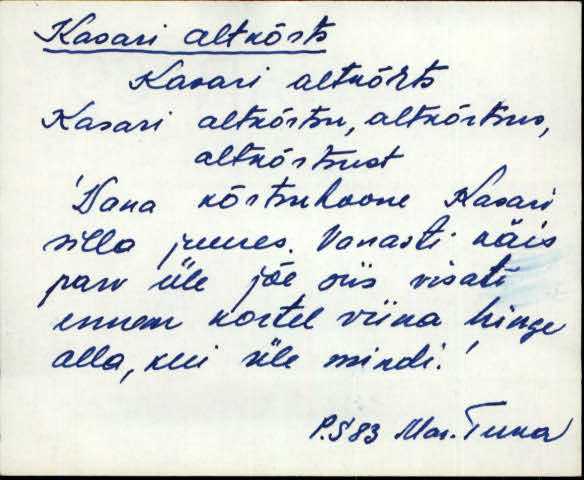 Kasari altkõrts
Kasari altkõrts
Kasari altkõrtsu, altkõrtsus,
altkõrtsust
'Vana kõrtsuhoone Kasari
silla juures. Vanasti käis
parv üle jõe siis visati
ennem kortel viina hinge
alla, kui üle mindi.'
P.S 83 Mar. Tuna